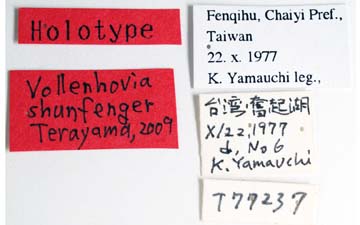 Holotype
Vollenhovia
shunfenger
Terayama, 2009
Fenqihu, Chaiyi Pref.,
Taiwan
22. x. 1977
K. Yamauchi leg.,
台湾,奮起湖
X/22, 1977
No 6
K. Yamauchi
T77237